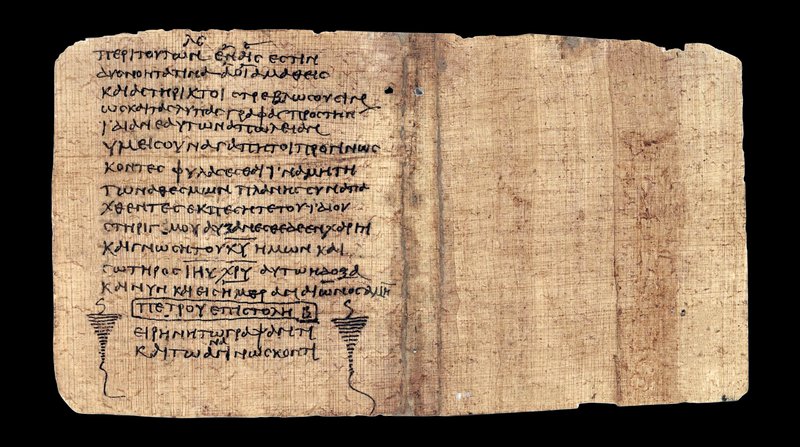 ΛϚ
ΠΕΡΙ ΤΟΥΤΩΝ ΕΝ ΑΙΣ ΕΣΤΙΝ
ΔΥΣΝΟΗΤΑ ΤΙΝΑ Α ΟΙ ΑΜΑΘΕΙΣ
ΚΑΙ ΑΣΤΗΡΙΚΤΟΙ ΣΤΡΕΒΛΩΣΟΥΣΙΝ
ΩΣ ΚΑΙ ΤΑΣ ΛΥΠΑΣ ΓΡΑΦΑΣ ΠΡΟΣ ΤΗΝ
ΪΔΙΑΝ ΕΑΥΤΩΝ ΑΠΩΛΕΙΑΝ
ΥΜΕΙΣ ΟΥΝ ΑΓΑΠΗΤΟΙ ΠΡΟΓΙΝΩΣ
ΚΟΝΤΕΣ ΦΥΛΑΣΕΣΘΑΙ ΪΝΑ ΜΗ ΤΗ
ΤΩΝ ΑΘΕΣΜΩΝ ΠΛΑΝΗΣ ΣΥΝΑΠΑ
ΧΘΕΝΤΕΣ ΕΚΠΕΣΗΤΕ ΤΟΥ ΪΔΙΟΥ
ΣΤΗΡΙΓΜΟΥ ΑΥΞΑΝΕΣΘΕ ΔΕ ΕΝ ΧΑΡΙΤΙ
ΚΑΙ ΓΝΩΣΗ ΤΟΥ ΚΥ ΗΜΩΝ ΚΑΙ
ΣΩΤΗΡΟΣ ΙΗΥ ΧΡΥ ΑΥΤΩ Η ΔΟΞΑ
ΚΑΙ ΝΥΝ ΚΑΙ ΕΙΣ ΗΜΕΡΑΝ ΑΙΩΝΟΣ ΑΜΗΝ
ΠΕΤΡΟΥ ΕΠΙΣΤΟΛΗ Β
ΕΙΡΗΝΗ ΤΩ ΓΡΑΨΑΝΤΙ
ΚΑΙ ΤΩ ΑΝΑΓΙΝΩΣΚΟΝΤΙ